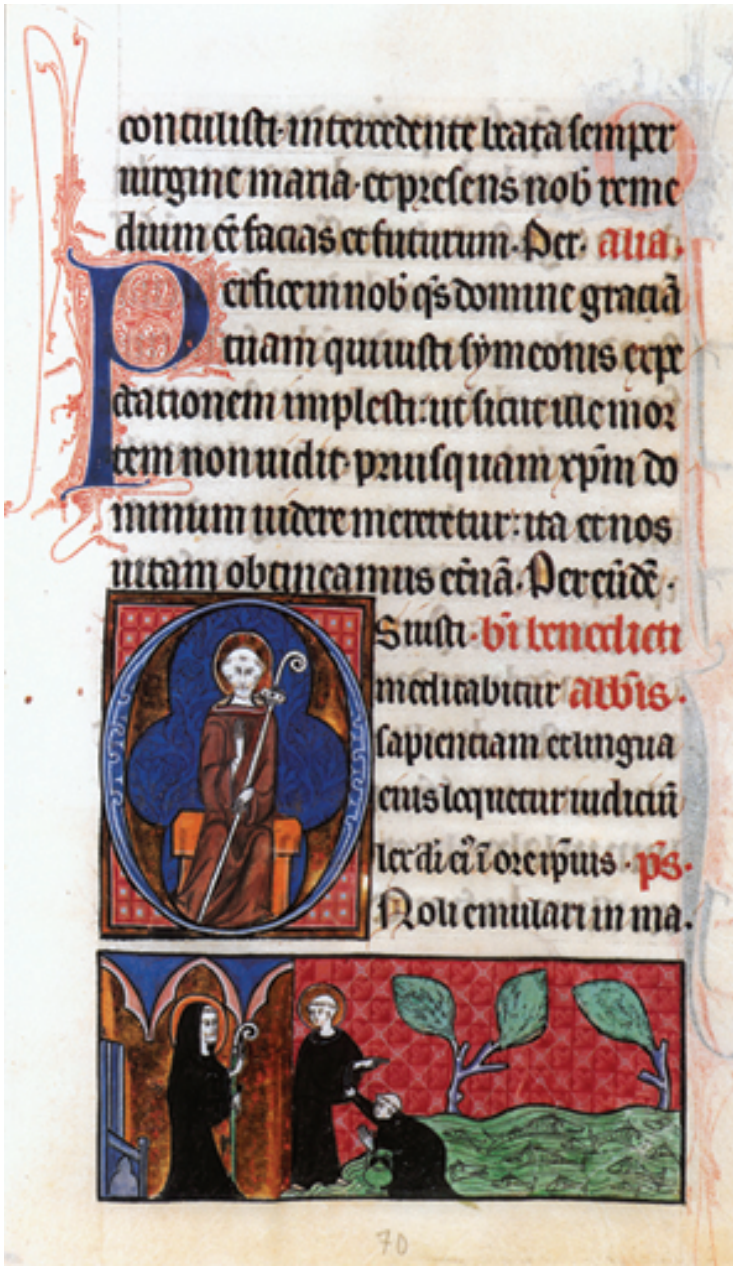 contulisti·intercedente beata semper
uirgine maria·et presens nob̄ reme
dium ēē facias et futurum·Per· alia·
Perfice in nob̄ qs̄ domine graciā
tuam qui iusti symeonis expe
ctationem implesti:ut sicut ille mor
tem non uidit·priusquam xp̄m do
minum uidere mereretur:ita et nos
uitam obtineamus et̄nā. Per eūdē·
Os iusti·bī benedicti
meditabitur abb̄is·
sapientiam et lingua
eius loquetur iudiciū
lex di ei ī ore ip̄ius·ps̄·
Noli emulari in ma.
70